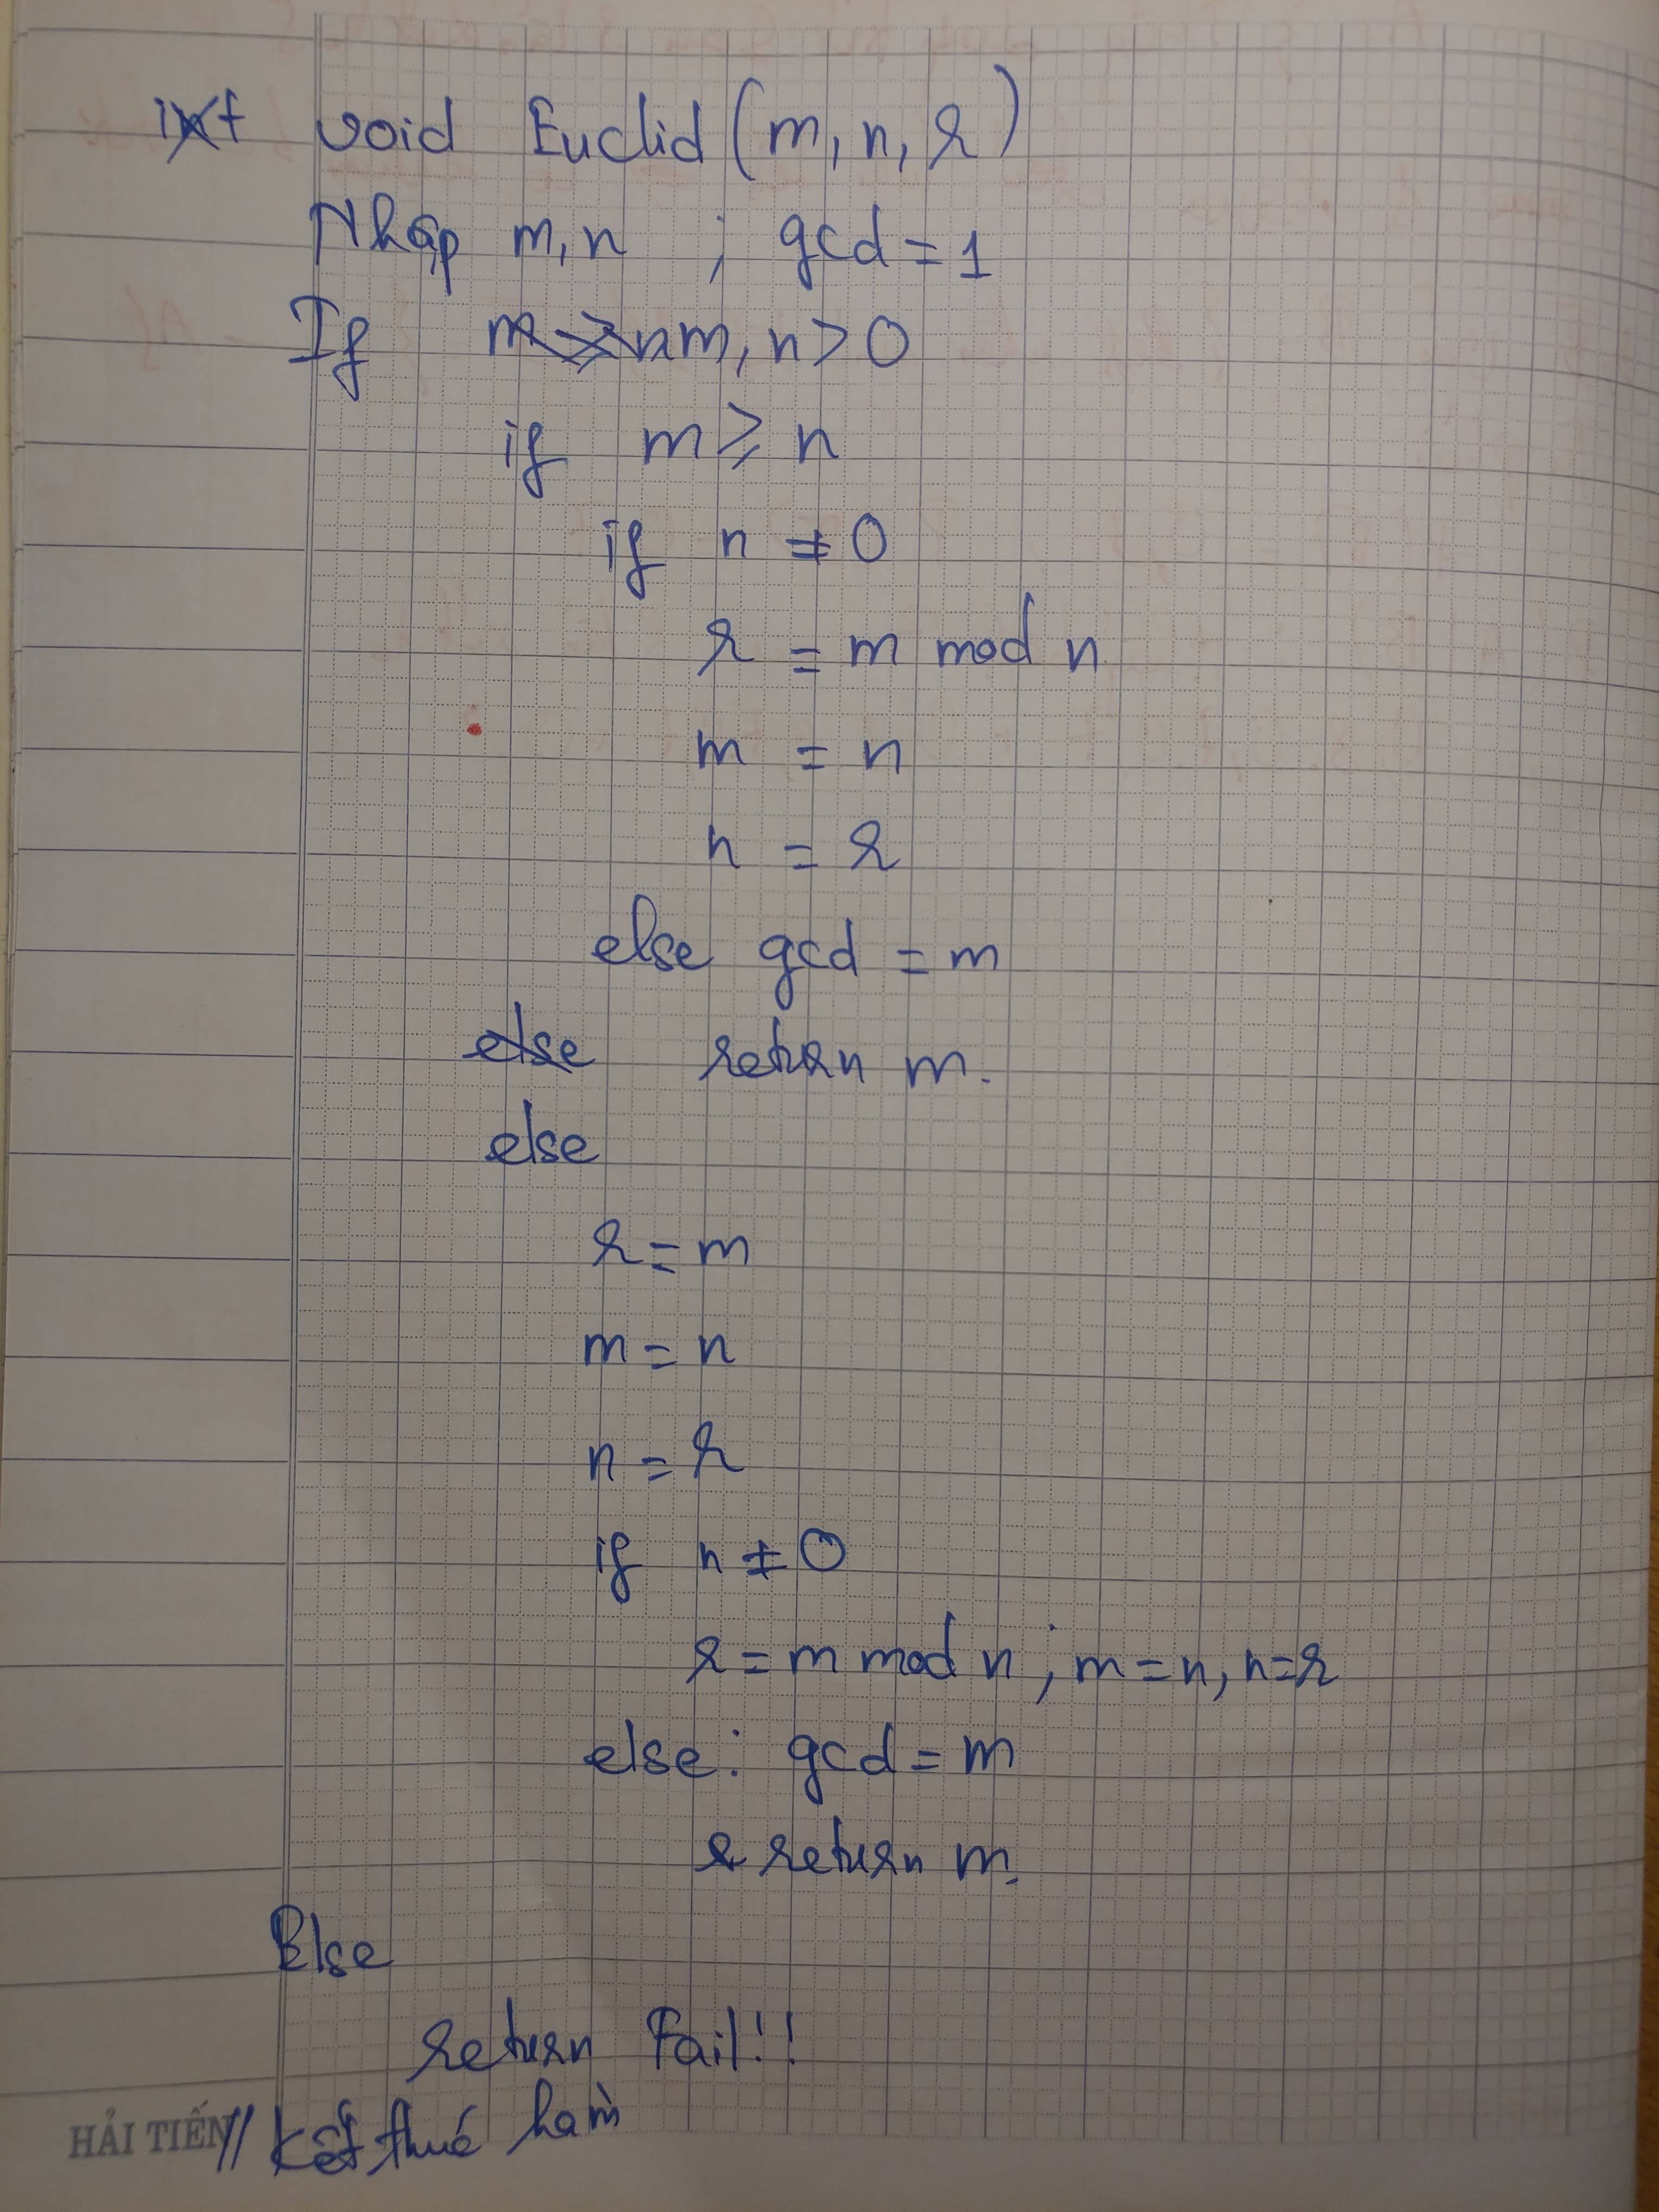 void Euclid (m, n, r)
Nhập m, n ; gcd = 1
If m, n > 0
if m ⩾ n
if n ≠ 0
r = m mod n
m = n
n = r
else gcd = m
else return m.
else
r = m
m = n
n = r
if n ≠ 0
r = m mod n ; m = n, n = r
else : gcd = m
return m.
Else
return Fail!!
HẢI TIẾN // kết thúc hàm